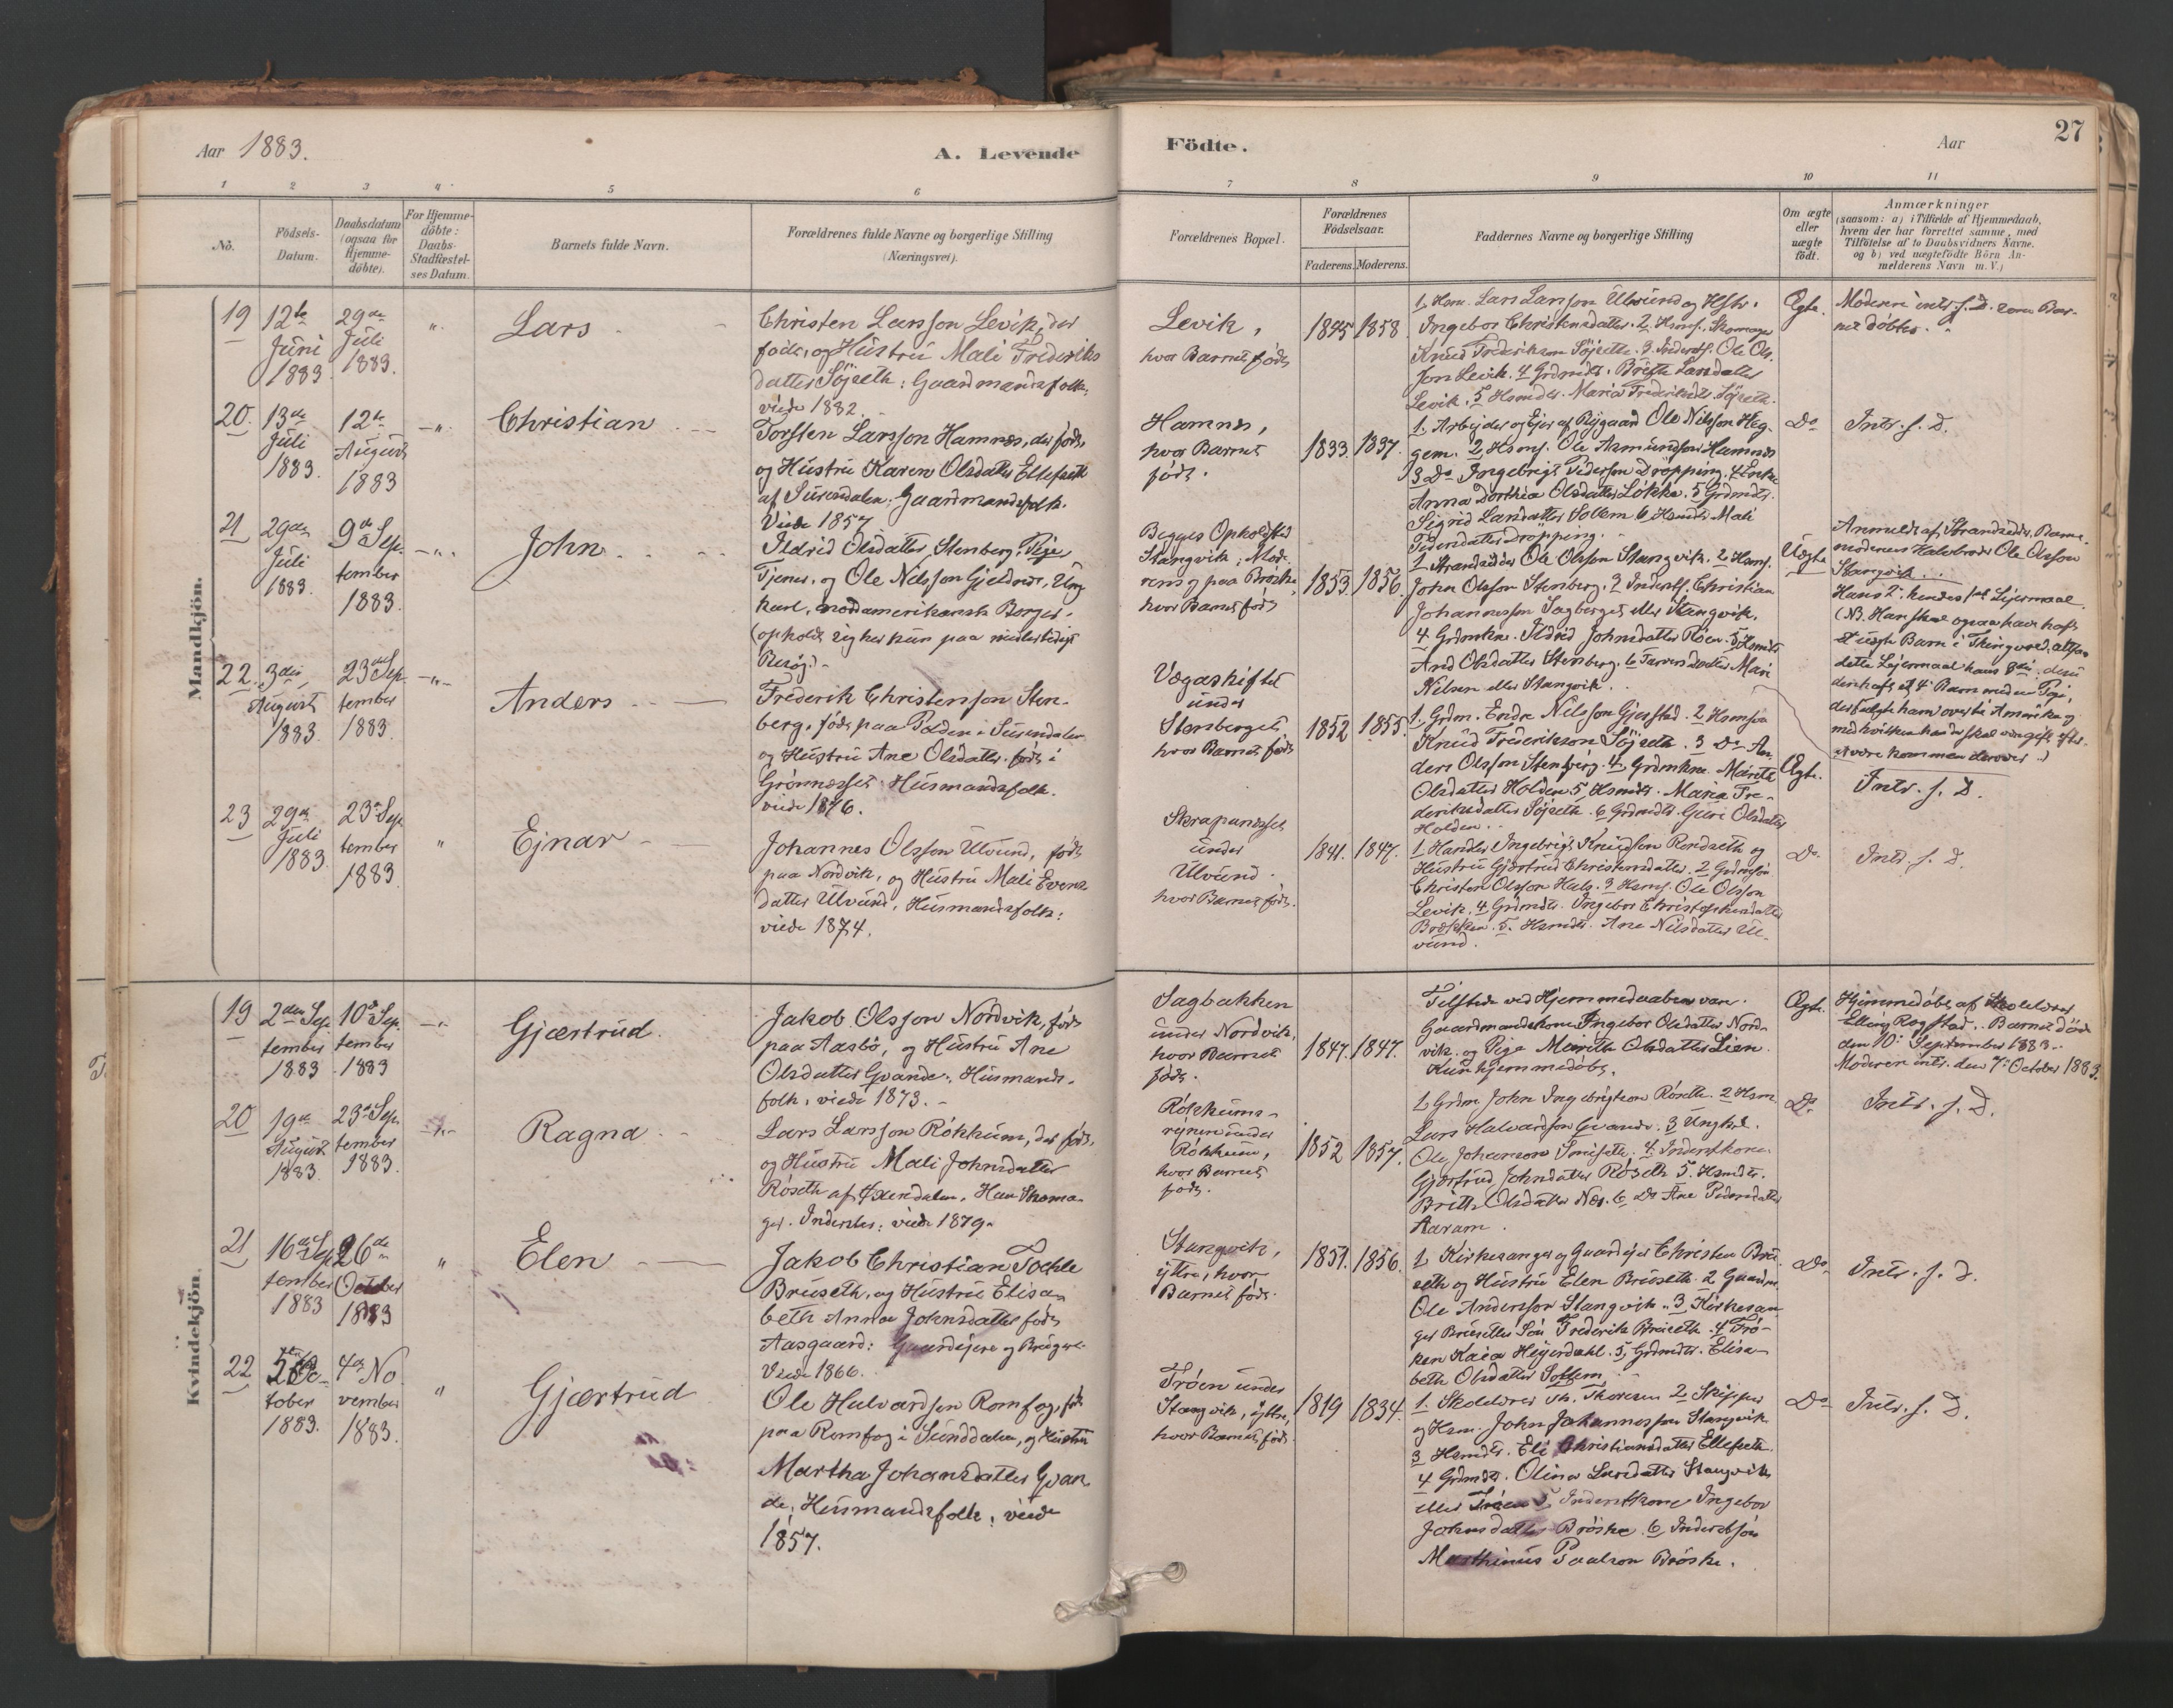 Aar 1883.
A. Levende
Födte.
Aar
27
1
2
3
4
5
6
7
8
9
10
11
No.
Födsels-
Datum.
Daabsdatum
(ogsaa for
Hjemme-
döbte).
For Hjemme-
döbte:
Daabs-
Stadfæstel-
ses Datum.
Barnets fulde Navn.
Forældrenes fulde Navne og borgerlige Stilling
(Næringsvei).
Forældrenes Bopæl.
Forældrenes
Födselsaar.
Faderens.
Moderens.
Faddernes Navne og borgerlige Stilling
Om ægte
eller
uægte
födt.
Anmærkninger
(saasom: a) i Tilfælde af Hjemmedaab,
hvem der har forrettet samme, med
Tilföielse af to Daabsvidners Navne.
og b) ved uægtefödte Börn An-
melderens Navn m.V.)
Mandkjön.
19
12te
Juni
1883
29de
Juli
1883.
Lars
Christen Larsson Levik, der
födt, og Hustru Mali Frederiks
datter Söjseth: Gaardmandsfolk,
viede 1882.
Levik,
hvor Barnet födt
1845
1858
1, Hsm. Lars Larsson Ulvund og Hstr.
Ingebor Christensdatter. 2 Hsmf. Skomager
Knud Frederikson Söjseth. 3. Inderstf. Ole Ols.
Jon Levik. 4 Grdmdtr. Brith Larsdatter
Levik. 5 Hsmdtr. Maria Frederiksdtr Söjseth.
Ægte.
Moderen intr. f. D. som Bar-
net döbtes.
20.
13de
Juli
1883.
12te
August
1883
Christian
Torsten Larsson Hamnes, der födt,
og Hustru Karen Olsdatter Ellefseth
af Surendalen: Gaardmandsfolk.
Viede 1857
Hamnes,
hvor Barnet
födt.
1833.
1837.
1, Arbejder og Ejer af Rijgaard Ole Nilsson Heg-
gem. 2 Hsmf. Ole Asmundson Hamnes
3 Do Ingebrigt Pederson Dröpping. 4 Enke
Anna Dorthea Olsdatter Lökke. 5 Grdmdtr.
Sigrid Larsdatter Sollem 6 Hsmdtr Mali
Pedersdatter Dröpping.
Do
Intr. f. D.
21
29de
Juli
1883.
9de Sep-
tember
1883.
John
Ildrid Olsdatter Stenberg, Pige
Tjener, og Ole Nilsson Gjeldnes, Ung
karl, nordamerikansk Borger.
(opholdt sig her kun paa midlertidigt
Besög.)
Begges Opholdssted
Stangvik; Mode-
rens og paa Bröske,
hvor Barnet födt
1853.
1856.
1 Strandsidder Ole Olsson Stangvik. 2 Hsmf.
John Olsson Stenberg. 3 Inderstf. Christian
Johannesson Sagberget eller Stangvik.
4. Grdmkne. Ildrid Johnsdatter Röen. 5 Hsmdtr
And Olsdatter Stenberg. 6 Farversdatter Mari
Nelsen eller Stangvik.
Uægte
Anmeldt af Strandsidder, Barne-
moderens Halvbroder Ole Olsson
Stangvik.
Hans 2. hendes 1ste Lejermaal.
(NB. Han skal ogsaa have haft
et uægte Barn i Thingvold, altsaa
dette Lejermaal hans 3die; desu
den haft et 4de Barn med en Pige,
der fulgte ham over til Amerika og
med hvilken han da skal være gift, efter
at være kommen derover.)
22.
3die
August
1883.
23de Sep-
tember
1883.
Anders
Frederik Christensson Sten-
berg, födt paa Polden i Surendalen
og Hustru Ane Olsdatter födt i
Grönnesset: Husmandsfolk.
viede 1876.
Vegaskiftet
under
Stenberget
hvor Barnet födt
1852
1855
1, Grdm. Endre Nilsson Gjerstad. 2 Hsmson
Knud Frederikson Söjseth. 3 Do An-
ders Olsson Stenberg. 4, Grdmkne. Marith
Olsdatter Holden. 5 Hsmdtr. Maria Fre-
deriksdatter Söjseth. 6 Grdmdtr. Guri Olsdatter
Holden.
Ægte.
Intr. f. D.
23
29de
Juli
1883.
23de Sep-
tember
1883
Ejnar
Johannes Olsson Ulvund, födt
paa Nordvik, og Hustru Mali Evens
datter Ulvund. Husmandsfolk:
viede 1874.
Skrapanesset
under
Ulvund.
hvor Barnet födt.
1841.
1847.
1. Handler Ingebrigt Knudson Rendseth og
Hustru Gjertrud Christensdatter. 2 Grdmsön
Christen Olsson Hals. 3 Hsmf. Ole Olsson
Levik. 4 Grdmdtr. Ingebor Christophersdatter
Brösken. 5. Hsmdtr. Ane Nilsdatter Ul-
vund.
Do
Intr. f. D.
Kvindekjön.
19
2den Sep-
tember
1883
10de Sep-
tember
1883
Gjærtrud.
Jakob Olsson Nordvik, födt
paa Aasbö, og Hustru Ane
Olsdatter Gvande: Husmands-
folk, viede 1873.
Sagbakken
under Nordvik
hvor Barnet
födt.
1847.
1847.
Tilstede ved Hjemmedaaben vare:
Gaardmandskone Ingebor Olsdatter Nord-
vik. og Pige Marith Olsdatter Lien.
Kun hjemmedöbt.
Ægte.
Hjemmedöbt af Skolelærer
Elling Rogstad. Barnet döde
den 10. September 1883.
Moderen intr. den 7. October 1883.
20
19de
August
1883
23de Sep-
tember
1883.
Ragna
Lars Larsson Rökkum, der födt,
og Hustru Mali Johnsdatter
Röseth af Öxendalen. Han Skoma-
ger. Inderster: viede 1879.
Rökkums-
röjnen under
Rökkum,
hvor Barnet
födt.
1852
1857.
1, Grdm. John Ingebrigtson Röseth. 2 Hsm.
Lars Halvordson Gvande. 3 Ungkl.
Ole Johanson Smiseth. 4. Inderstkone
Gjertrud Johnsdatter Röseth 5. Hsmdtr.
Brith Olsdatter Næs. 6 Do Ane Pedersdatter
Aaram.
Do
Intr. f. D.
21
16de Sep-
tember
1883
26de
October
1883
Elen
Jakob Christian Sochle
Bruseth, og Hustru Elisa-
beth Anna Johnsdatter födt
Aasgaard: Gaardejere og Brugere
Viede 1866.
Stangvik,
ytre, hvor
Barnet födt.
1851.
1856.
1. Kirkesanger og Gaardejer Christen Bru-
seth og Hustru Elen Bruseth. 2 Gaardm.
Ole Andersson Stangvik. 3 Kirkesan-
ger Bruseths Sön Frederik Bruseth. 4 Frö-
ken Kaia Heyerdahl. 5, Grdmdtr. Elisa-
beth Olsdatter Sollem
Do
Intr. f. D.
22
5te Oc-
tober
1883.
4de No-
vember
1883.
Gjærtrud
Ole Halvardsen Romfog, födt
paa Romfog i Sunddalen, og Hustru
Martha Johansdatter Gvan-
de. Husmandsfolk, viede
1857.
Tröen under
Stangvik, ytre,
hvor Barnet födt.
1819
1834.
1. Skolelærer Th. Thoresen 2 Skipper
og Hsm. John Johannesson Stangvik
3 Hsmdtr. Eli Christiansdatter Ellefseth.
4 Grdmdtr. Olina Larsdatter Stangvik
eller Tröen 5, Inderstkone Ingebor
Johnsdatter Bröske. 6 Inderstsön
Marthinus Paulson Bröske.
Do
Intr. f. D.